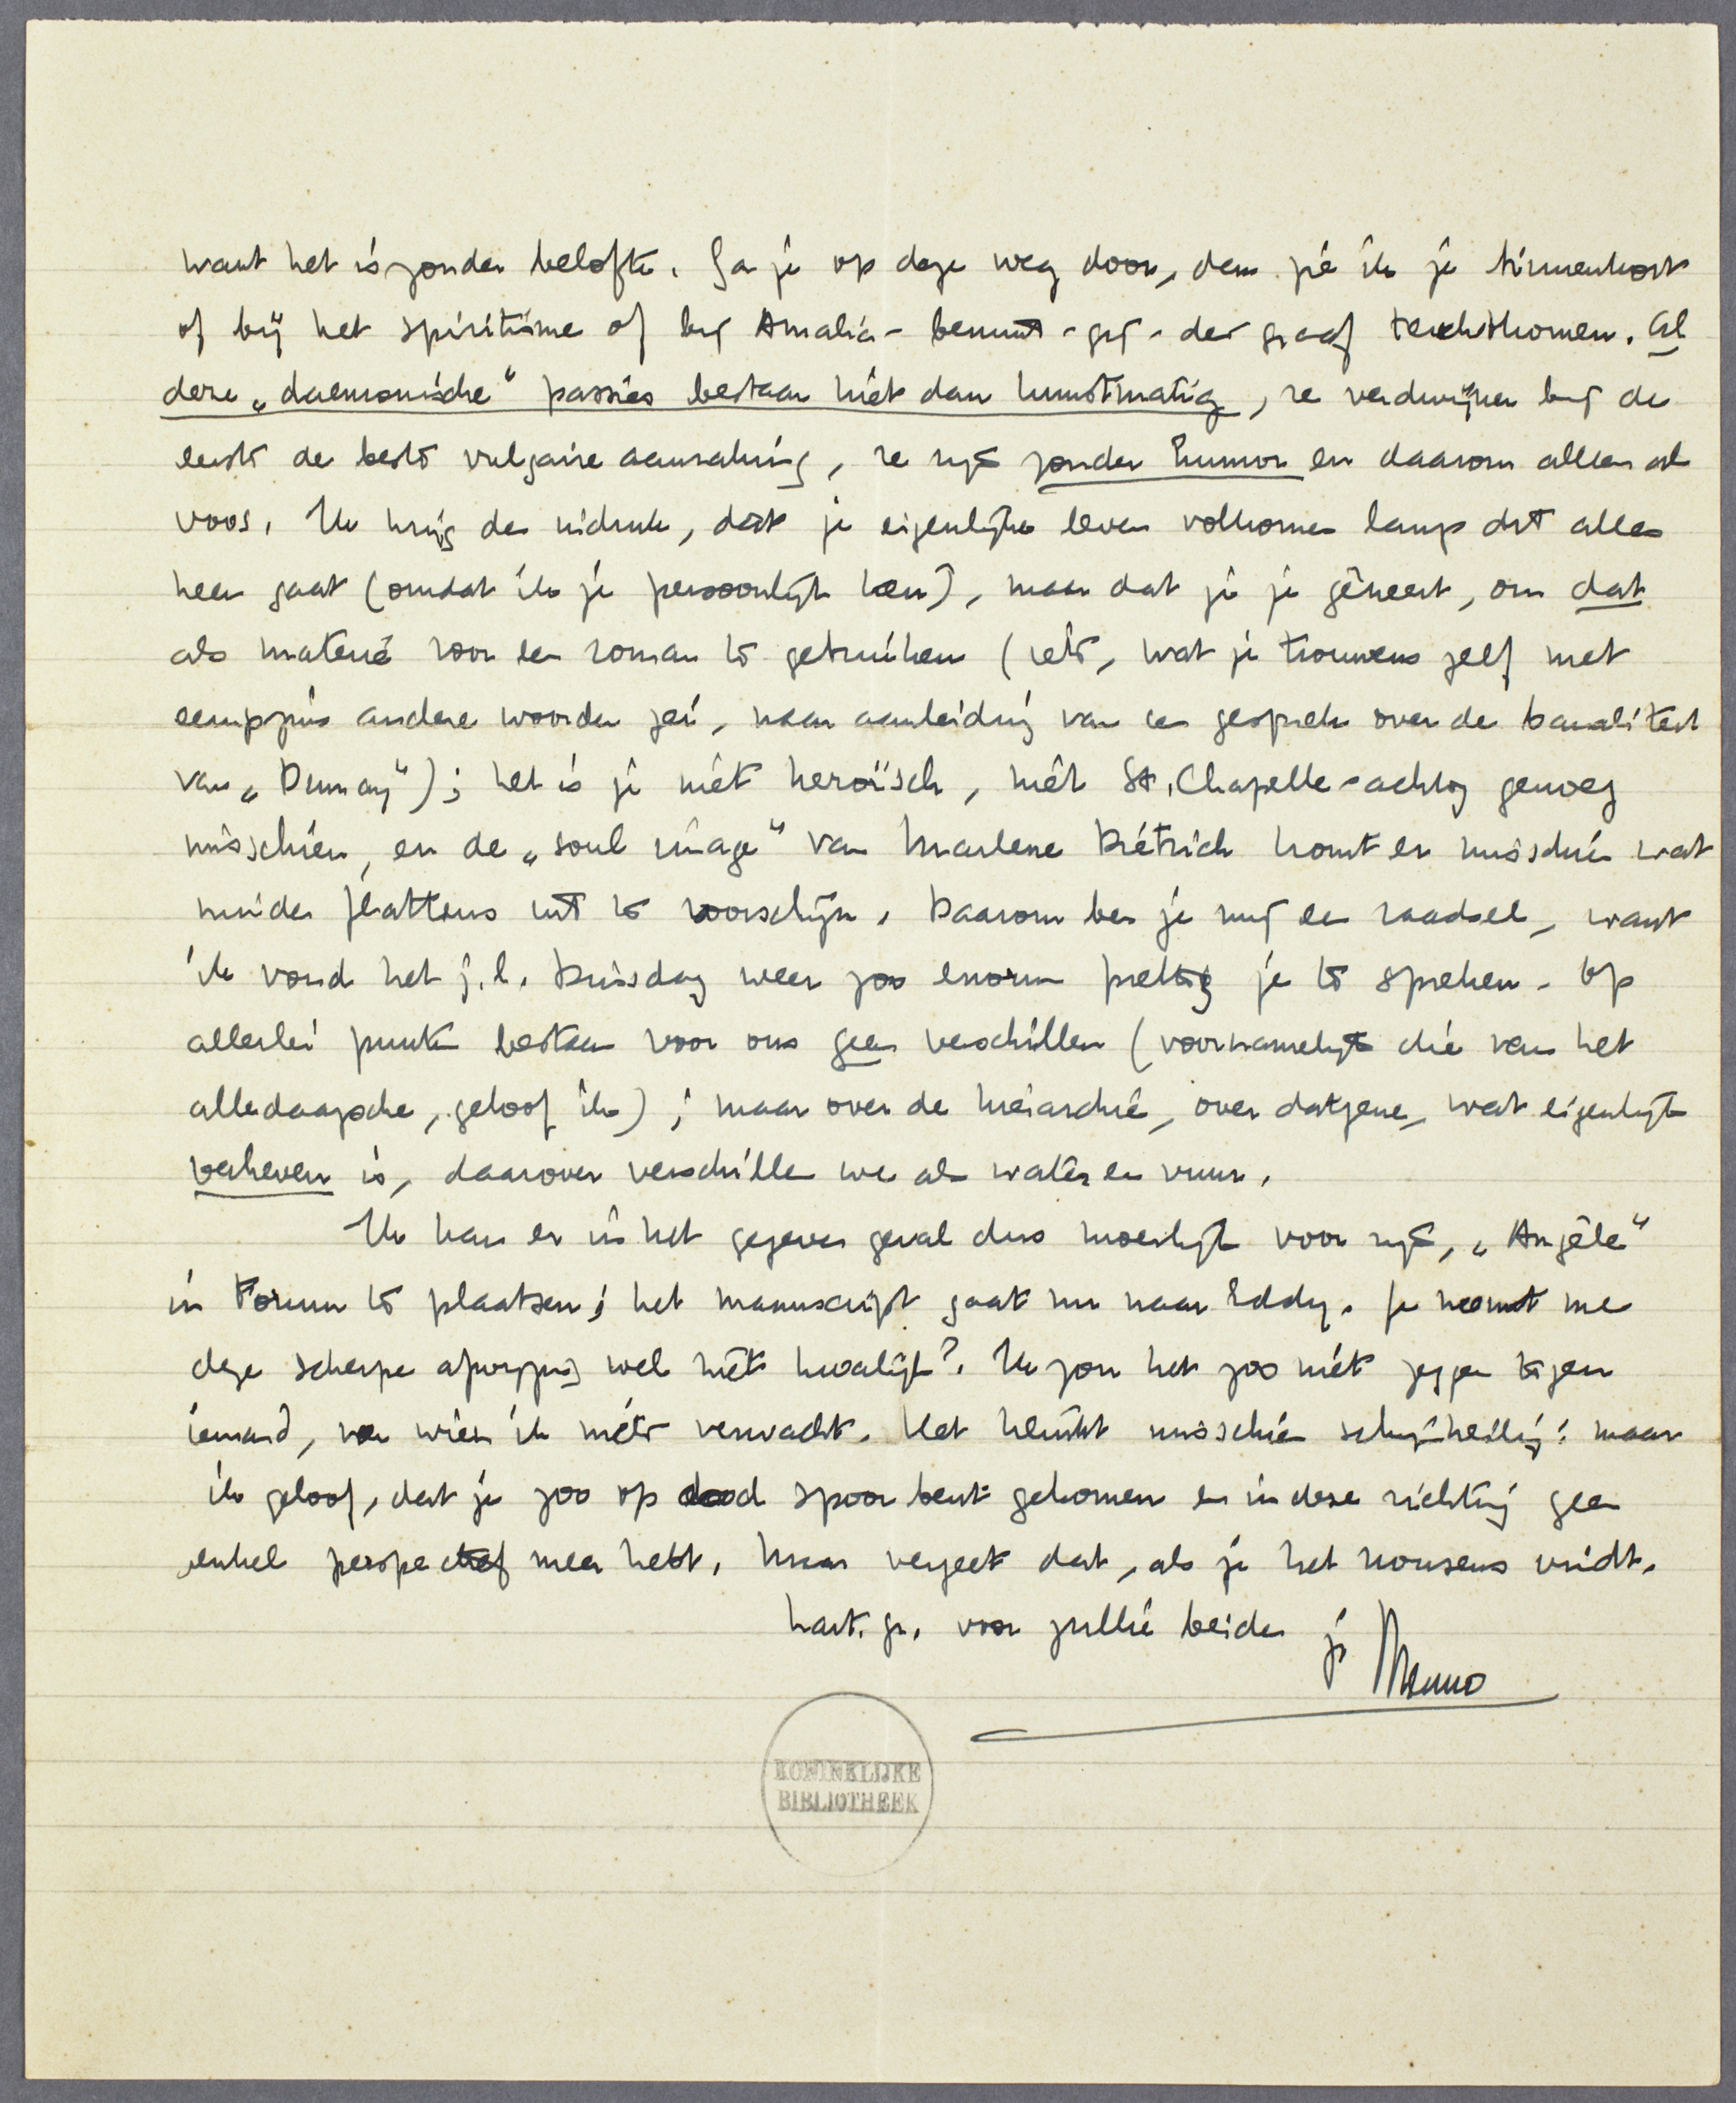 want het is zonder belofte. Ga je op deze weg door, dan zie ik je binnenkort
of bij het spiritisme of bij Amalia-bemint-gij-den graaf terechtkomen. Al
deze „daemonische” passies bestaan niet dan kunstmatig, ze verdwijnen bij de
eerste de beste vulgaire aanraking, ze zijn zonder humor en daarom alleen al
voos. Ik krijg den indruk, dat je eigenlijke leven volkomen langs dit alles
heen gaat (omdat ik je persoonlijk ken), maar dat je je gêneert, om dat
als materie voor een roman te gebruiken (iets, wat je trouwens zelf met
eenigszins andere woorden zei, naar aanleiding van een gesprek over de banaliteit
van „Dumay”); het is je niet heroïsch, niet St. Chapelle-achtig genoeg
misschien, en de „soul image” van Marlene Dietrich komt er misschien wat
minder flatteus uit te voorschijn. Daarom ben je mij een raadsel, want
ik vond het j.l. Dinsdag weer zoo enorm prettig je te spreken. Op
allerlei punten bestaan voor ons geen verschillen (voornamelijk die van het
alledaagsche, geloof ik); maar over de hiërarchie, over datgene, wat eigenlijk
verheven is, daarover verschillen we als water en vuur.
Ik kan er in het gegeven geval dus moeilijk voor zijn, „Angèle”
in Forum te plaatsen; het manuscript gaat nu naar Eddy. Je neemt me
deze scherpe afwijzing wel niet kwalijk? Ik zou het zoo niet zeggen tegen
iemand, van wien ik niets verwacht. Het klinkt misschien schijnheilig: maar
ik geloof, dat je zoo op dood spoor bent gekomen en in deze richting geen
enkel perspectief meer hebt. Maar vergeet dat, als je het nonsens vindt.
hart. gr. voor jullie beiden je Menno
KONINKLIJKE
BIBLIOTHEEK